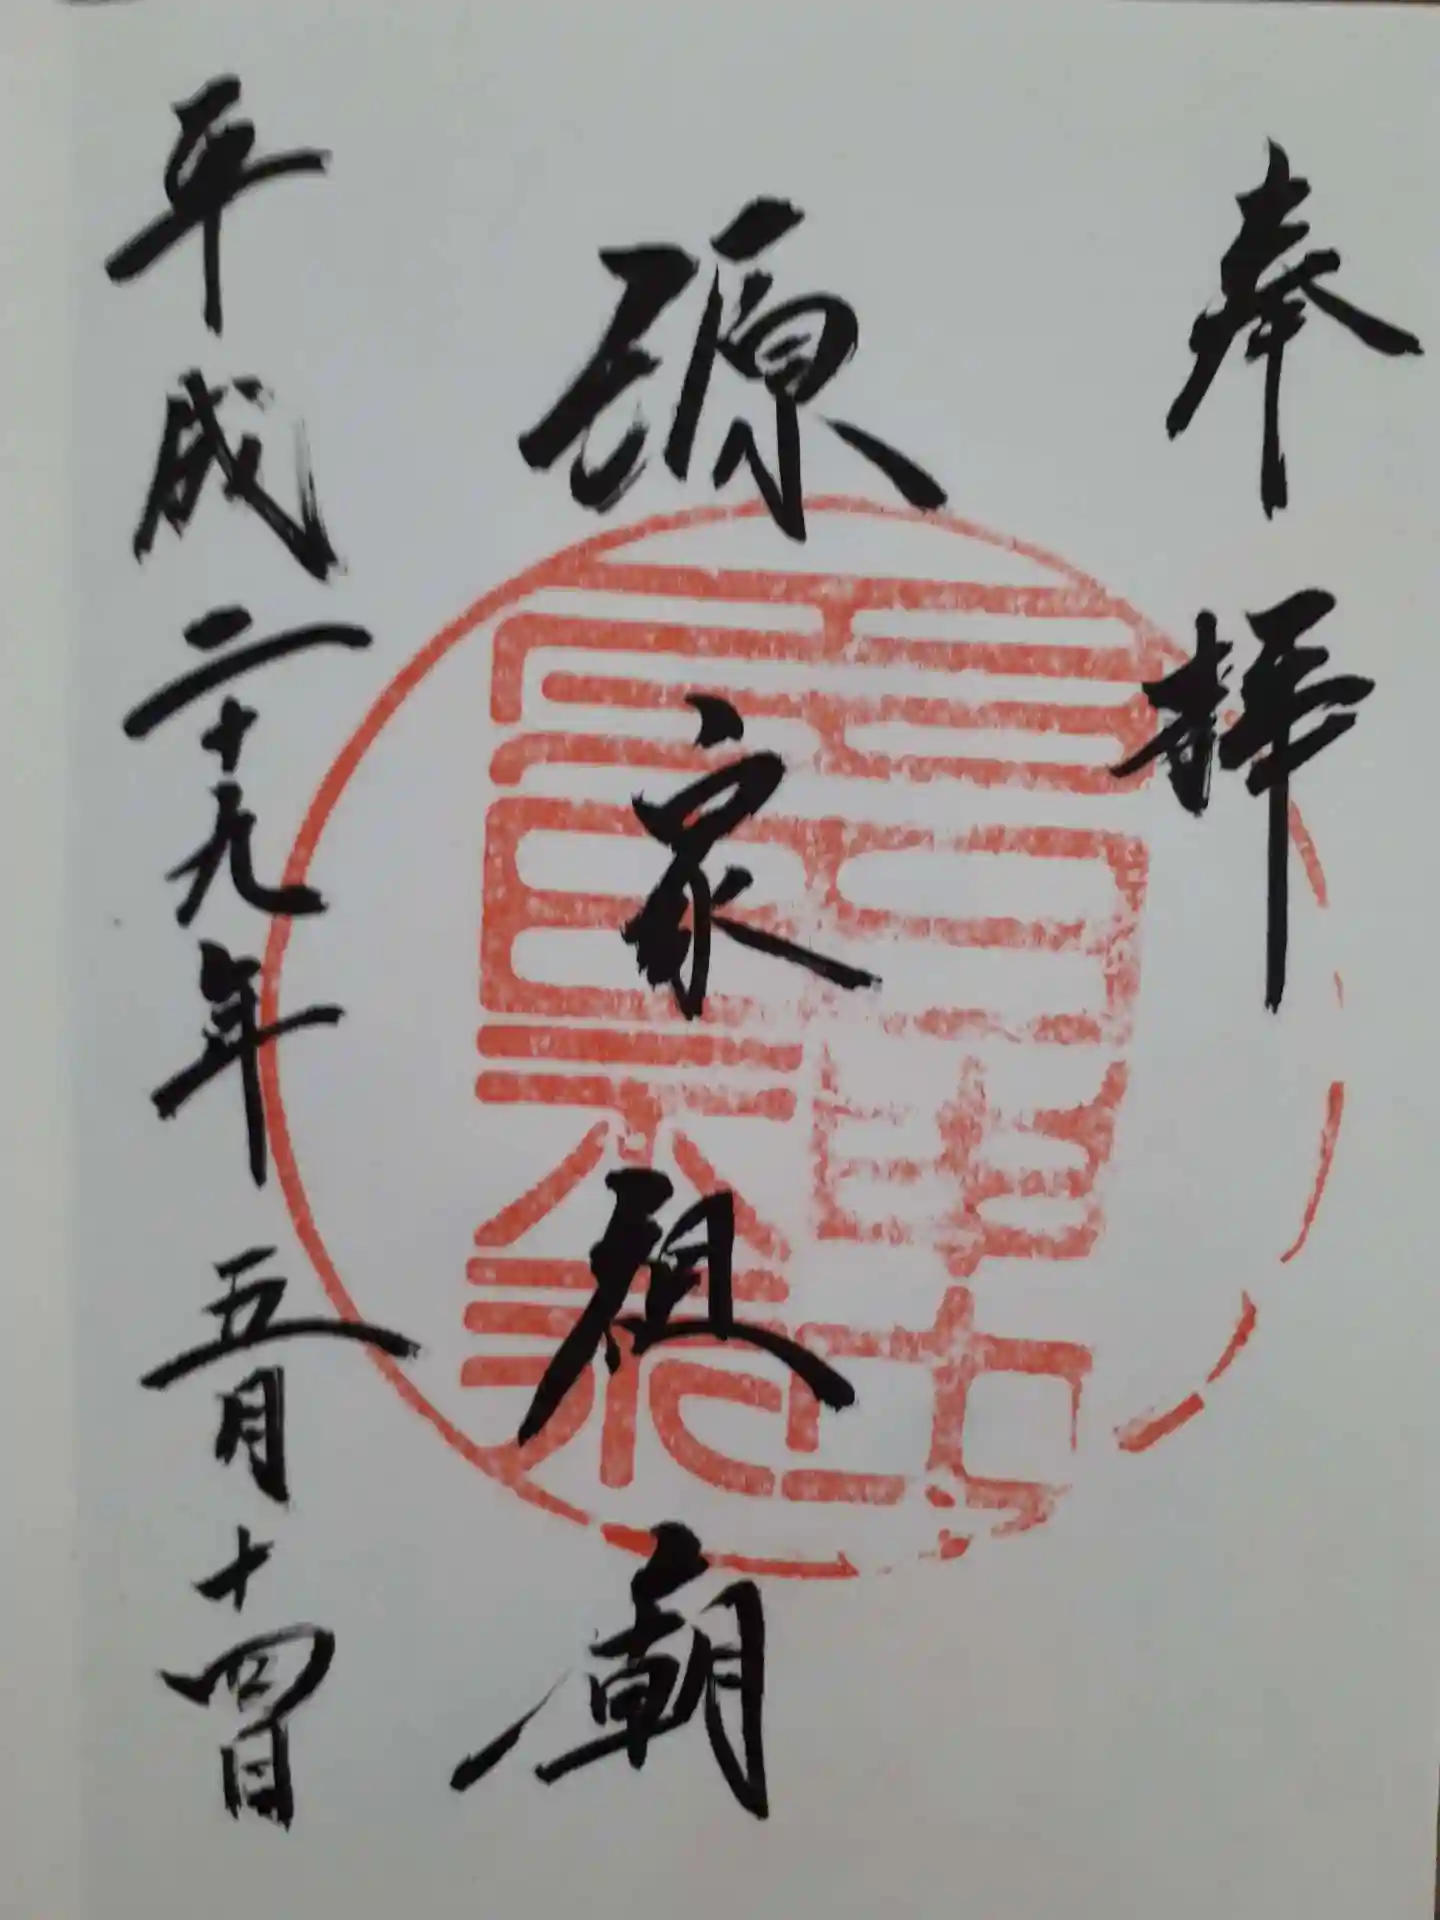 奉拝
源家祖廟
平成二十九年五月十四日